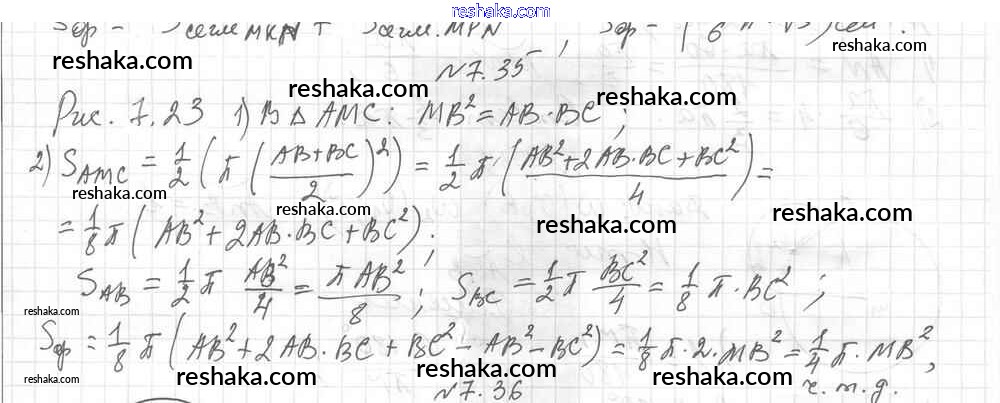 reshaka.com
Sфр = Sсегм MKN + Sсегм. MPN ; Sфр =
N 7.35
reshaka.com
reshaka.com
reshaka.com
Рис. 7.23 1) В △ AMC : MB² = AB·BC ;
2) S_AMC = 1/2 (π ((AB+BC)/2)²) = 1/2 π ((AB²+2AB·BC+BC²)/4) =
reshaka.com
reshaka.com
reshaka.com
reshaka.com
= 1/8 π (AB² + 2AB·BC + BC²) ;
S_AB = 1/2 π AB²/4 = πAB²/8 ; S_BC = 1/2 π BC²/4 = 1/8 π·BC² ;
reshaka.com
Sфр = 1/8 π (AB² + 2AB·BC + BC² − AB² − BC²) = 1/8 π·2·MB² = 1/4 π·MB² ,
reshaka.com
reshaka.com
reshaka.com
reshaka.com
ч.т.д.
N 7.36